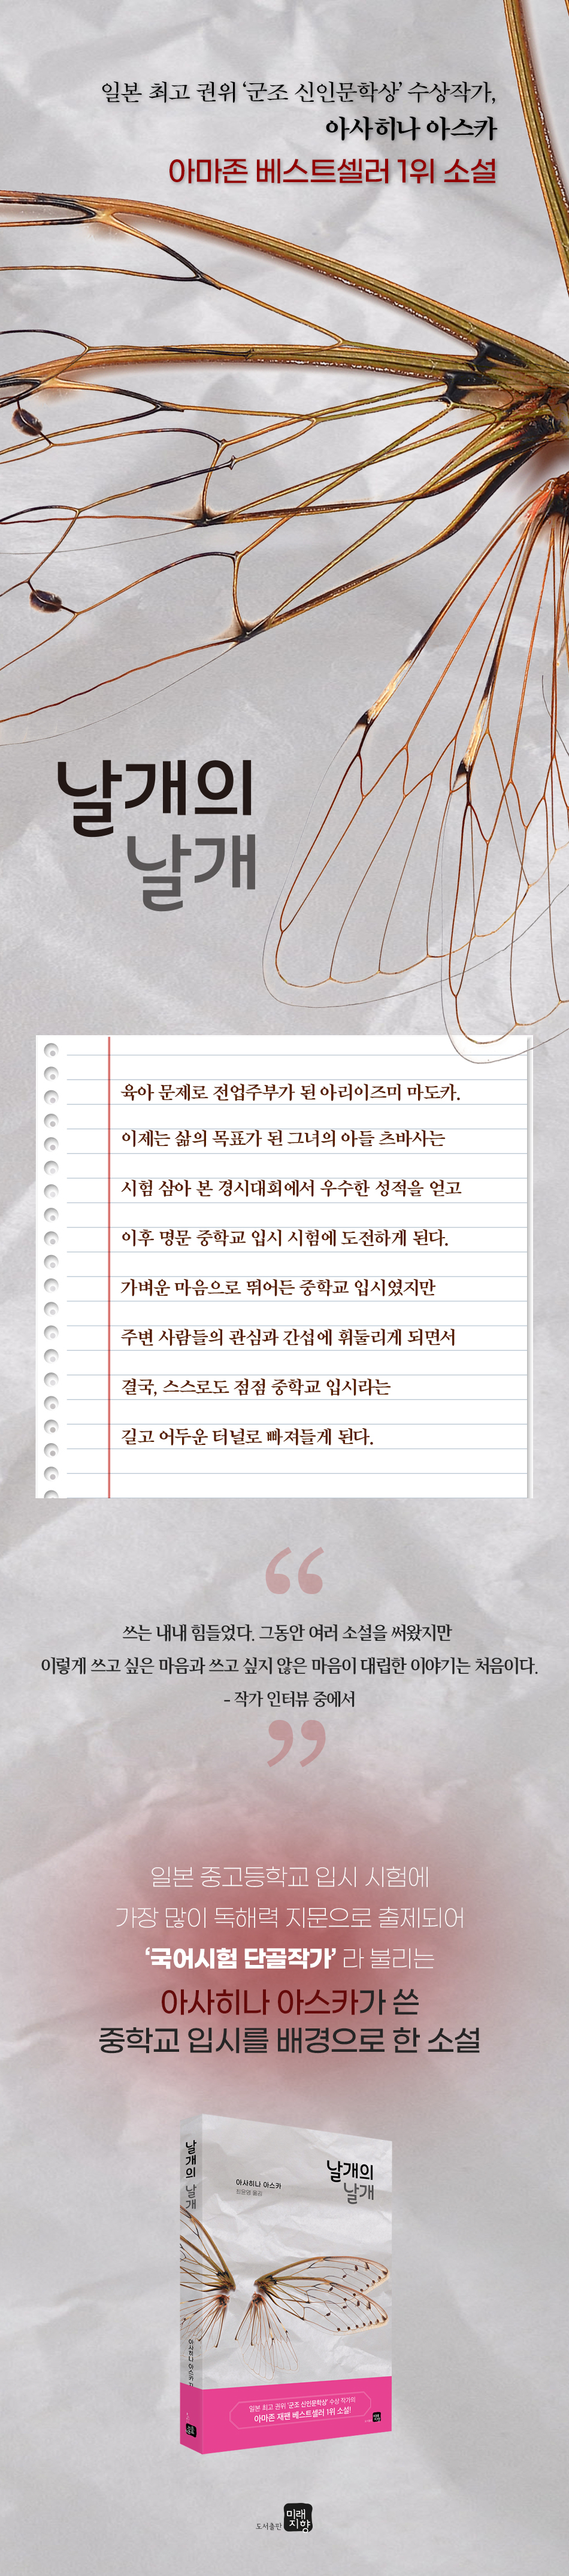 일본 최고 권위 ‘군조 신인문학상’ 수상작가,
아사히나 아스카
아마존 베스트셀러 1위 소설
날개의
날개
육아 문제로 전업주부가 된 아리이즈미 마도카.
이제는 삶의 목표가 된 그녀의 아들 츠바사는
시험 삼아 본 경시대회에서 우수한 성적을 얻고
이후 명문 중학교 입시 시험에 도전하게 된다.
가벼운 마음으로 뛰어든 중학교 입시였지만
주변 사람들의 관심과 간섭에 휘둘리게 되면서
결국, 스스로도 점점 중학교 입시라는
길고 어두운 터널로 빠져들게 된다.
“
쓰는 내내 힘들었다. 그동안 여러 소설을 써왔지만
이렇게 쓰고 싶은 마음과 쓰고 싶지 않은 마음이 대립한 이야기는 처음이다.
- 작가 인터뷰 중에서
”
일본 중고등학교 입시 시험에
가장 많이 독해력 지문으로 출제되어
‘국어시험 단골작가’ 라 불리는
아사히나 아스카가 쓴
중학교 입시를 배경으로 한 소설
날개의 날개
아사히나 아스카
날개의
날개
아사히나 아스카
옮김
일본 최고 권위 ‘군조 신인문학상’ 수상 작가의
아마존 재팬 베스트셀러 1위 소설!
도서출판 미래지향